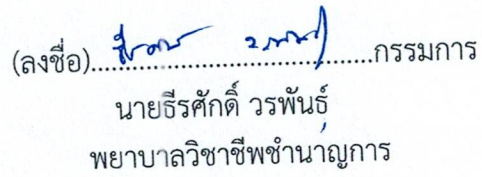 (ลงชื่อ)..............................กรรมการ
นายธีรศักดิ์ วรพันธุ์
พยาบาลวิชาชีพชำนาญการ